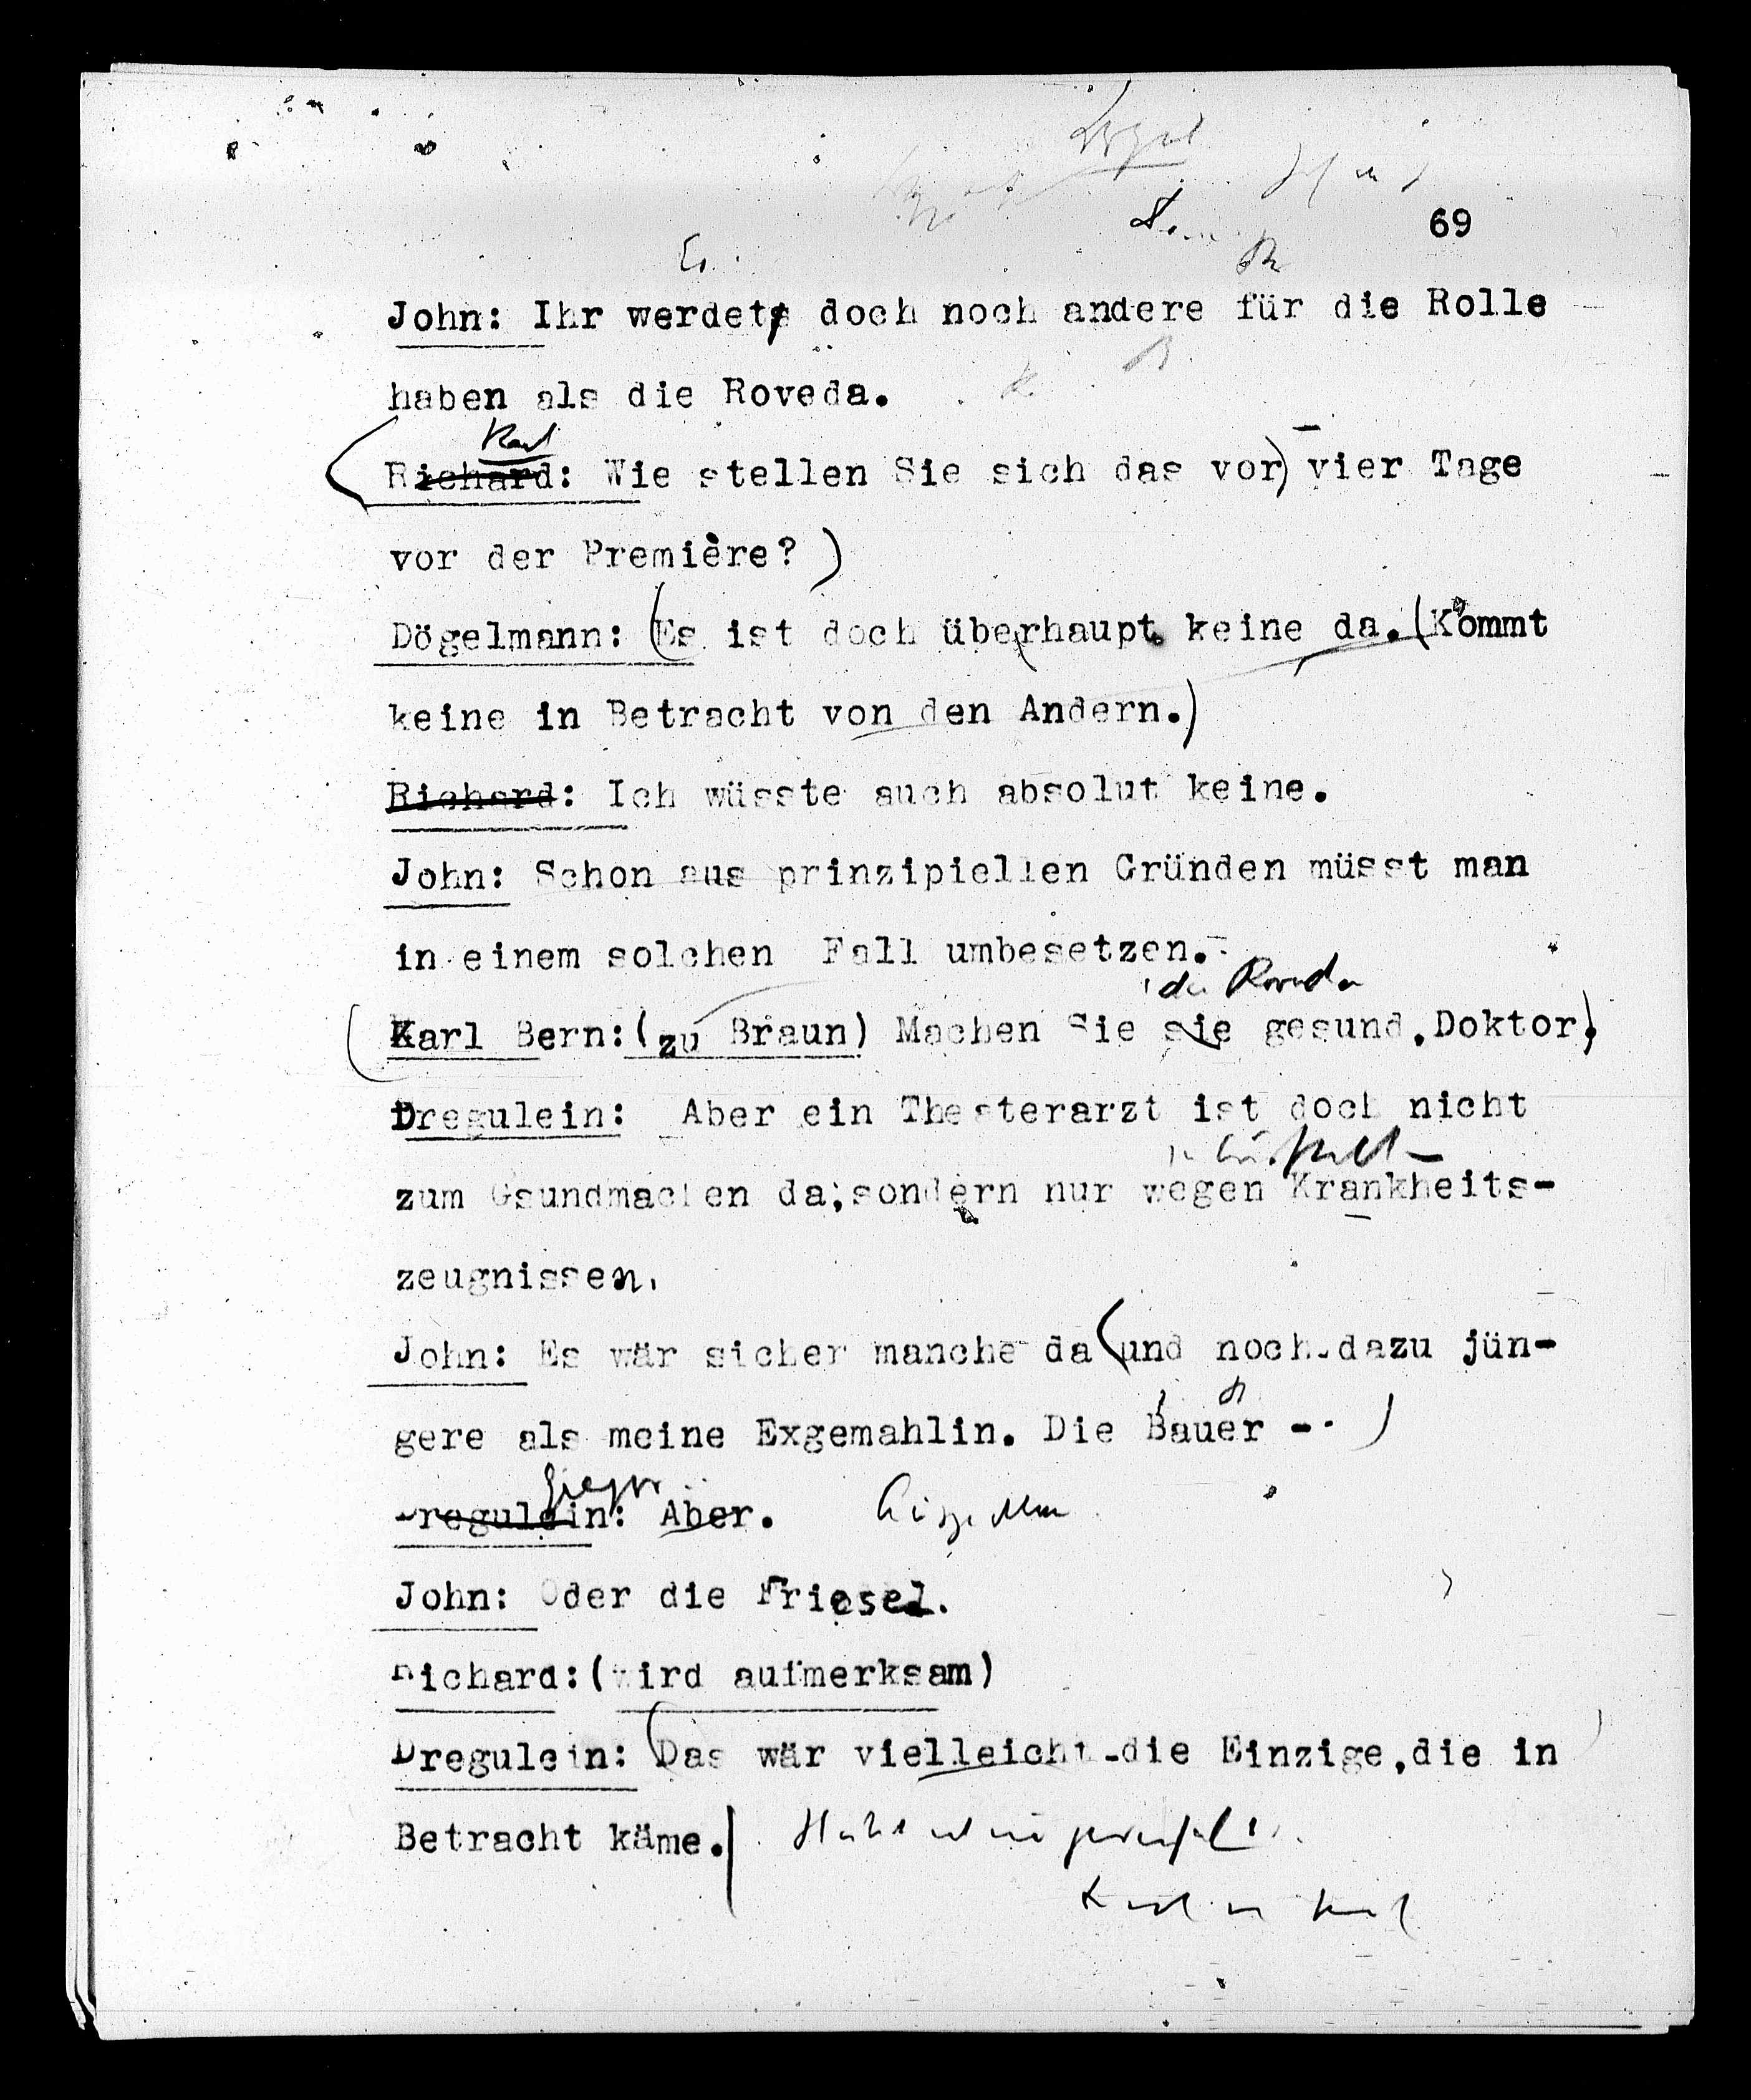 69
John: Ihr werdet doch noch andere für die Rolle
haben als die Roveda.
Karl
Richard: Wie stellen Sie sich das vor) vier Tage
vor der Première?)
Dögelmann: (Es ist doch überhaupt keine da. (Kommt
keine in Betracht von den Andern.)
Richard: Ich wüsste auch absolut keine.
John: Schon aus prinzipiellen Gründen müsst man
in einem solchen Fall umbesetzen.
die Roveda
(Karl Bern:(zu Braun) Machen Sie sie gesund, Doktor)
Dregulein: Aber ein Theaterarzt ist doch nicht
zum Gsundmachen da, sondern nur wegen Krankheits-
zeugnissen.
John: Es wär sicher manche da (und noch dazu jün-
gere als meine Exgemahlin. Die Bauer -- )
Dregulein: Aber.
John: Oder die Friesel.
Richard:(wird aufmerksam)
Dregulein: (Das wär vielleicht die Einzige, die in
Betracht käme.)